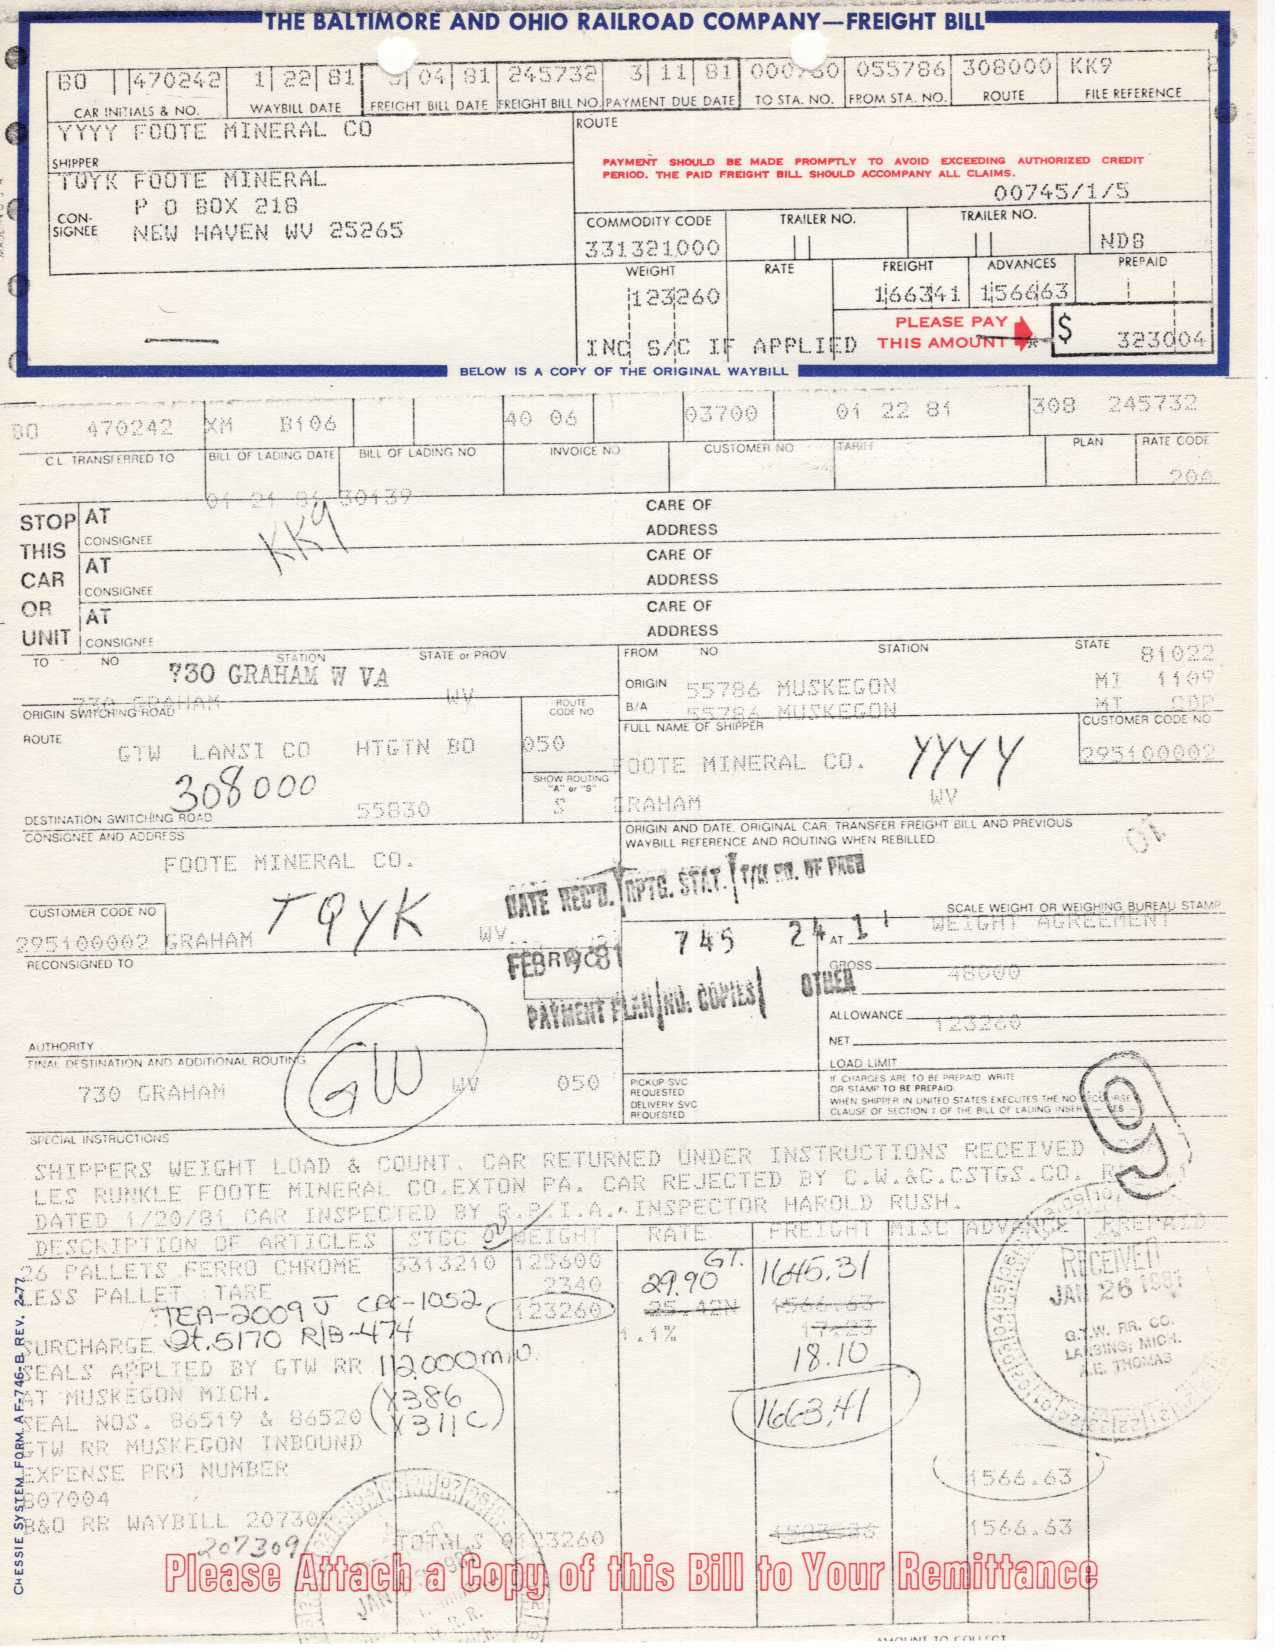 THE BALTIMORE AND OHIO RAILROAD COMPANY—FREIGHT BILL
BO 470242 1 22 81 3 04 81 245732 3 11 81 000730 055786 308000 KK9
CAR INITIALS & NO. WAYBILL DATE FREIGHT BILL DATE FREIGHT BILL NO. PAYMENT DUE DATE TO STA. NO. FROM STA. NO. ROUTE FILE REFERENCE
YYYY FOOTE MINERAL CO
ROUTE
SHIPPER
PAYMENT SHOULD BE MADE PROMPTLY TO AVOID EXCEEDING AUTHORIZED CREDIT
PERIOD. THE PAID FREIGHT BILL SHOULD ACCOMPANY ALL CLAIMS.
TQYK FOOTE MINERAL
00745/1/5
P O BOX 218
CON-
SIGNEE
NEW HAVEN WV 25265
COMMODITY CODE TRAILER NO. TRAILER NO.
331321000 NDB
WEIGHT RATE FREIGHT ADVANCES PREPAID
123260 166341 156663
PLEASE PAY
THIS AMOUNT $ 323004
INC S/C IF APPLIED
BELOW IS A COPY OF THE ORIGINAL WAYBILL
BO 470242 XM B106 40 06 03700 01 22 81 308 245732
C.L. TRANSFERRED TO BILL OF LADING DATE BILL OF LADING NO INVOICE NO CUSTOMER NO TARIFF PLAN RATE CODE
206
01 21 81 30139
STOP
THIS
CAR
OR
UNIT
AT CARE OF
CONSIGNEE ADDRESS
KK9
AT CARE OF
CONSIGNEE ADDRESS
AT CARE OF
CONSIGNEE ADDRESS
TO NO STATION STATE or PROV FROM NO STATION STATE
730 GRAHAM W VA
81022
ORIGIN 55786 MUSKEGON MI 1109
730 GRAHAM WV
B/A 55786 MUSKEGON MI
ORIGIN SWITCHING ROAD ROUTE CODE NO
FULL NAME OF SHIPPER CUSTOMER CODE NO
ROUTE
GTW LANSI CO HTGTN BO 050
FOOTE MINERAL CO. YYYY 295100002
308000
SHOW ROUTING
"A" or "S"
55830 S GRAHAM WV
DESTINATION SWITCHING ROAD
CONSIGNEE AND ADDRESS
ORIGIN AND DATE, ORIGINAL CAR, TRANSFER FREIGHT BILL AND PREVIOUS
WAYBILL REFERENCE AND ROUTING WHEN REBILLED.
FOOTE MINERAL CO.
DATE REC'D. RPTG. STAT. T/M NO. OF PAGE
TQYK
CUSTOMER CODE NO
295100002 GRAHAM WV
745 24 1
SCALE WEIGHT OR WEIGHING BUREAU STAMP
AT WEIGHT AGREEMENT
RECONSIGNED TO
PAYMENT PLAN NO. COPIES OTHER
GROSS 48000
ALLOWANCE 123260
NET
AUTHORITY
LOAD LIMIT
FINAL DESTINATION AND ADDITIONAL ROUTING
GW
730 GRAHAM WV 050
PICKUP SVC
REQUESTED
DELIVERY SVC
REQUESTED
IF CHARGES ARE TO BE PREPAID WRITE
OR STAMP TO BE PREPAID.
WHEN SHIPPER IN UNITED STATES EXECUTES THE NO RECOURSE
CLAUSE OF SECTION 7 OF THE BILL OF LADING INSERT YES
9
SPECIAL INSTRUCTIONS
SHIPPERS WEIGHT LOAD & COUNT. CAR RETURNED UNDER INSTRUCTIONS RECEIVED
LES RUNKLE FOOTE MINERAL CO.EXTON PA. CAR REJECTED BY C.W.&C.CSTGS.CO.
DATED 1/20/81 CAR INSPECTED BY R.P.I.A. INSPECTOR HAROLD RUSH.
DESCRIPTION OF ARTICLES STCC WEIGHT RATE FREIGHT MISC ADVANCE PREPAID
26 PALLETS FERRO CHROME 3313210 125600 GT. 29.90 1645.31
LESS PALLET TARE 2340
TEA-2009 J CPC-1052 123260 25.42N 1566.63
SURCHARGE St.5170 R/B-474 1.1% 17.23
18.10
SEALS APPLIED BY GTW RR 112,000 m/o.
AT MUSKEGON MICH. (X386
SEAL NOS. 86519 & 86520 X311C) 1663.41
GTW RR MUSKEGON INBOUND
EXPENSE PRO NUMBER 1566.63
807004
B&O RR WAYBILL 207309
207309
TOTALS 0123260 1566.63
RECEIVED
JAN 26 1981
G.T.W. RR. CO.
LANSING, MICH.
A.E. THOMAS
Please Attach a Copy of this Bill to Your Remittance
AMOUNT TO COLLECT
CHESSIE SYSTEM FORM AF-746-B REV. 2-77